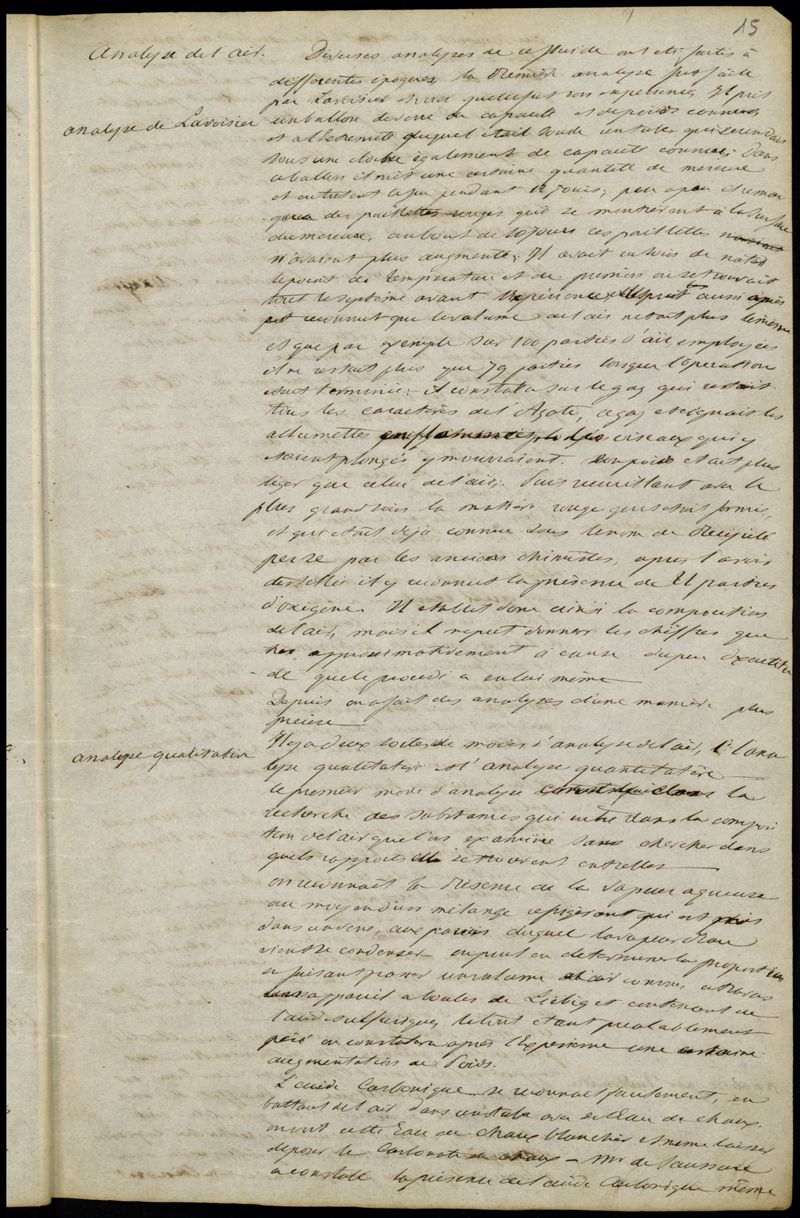 15
Analyse de l'air.
Diverses analyses de ce fluide ont été faites à
différentes époques la première analyse fut faite
par Lavoisier voici quelle fut son expérience, Il prit
un ballon de verre de capacité et de poids connus
analyse de Lavoisier
et a l'extremité duquel était soudé un tube qui se rendait
sous une cloche également de capacité connue; Dans
ce ballon il mit une certaine quantité de mercure
et entretint le feu pendant 12 jours; peu a peu il remar
qua des paillettes rouges qui se montrèrent à la surface
du mercure, au bout de 10 jours ces paillettes
n'avaient plus augmenté; Il avait eu soin de noter
le point de température et de pression ou se trouvait
tout le système avant l'expérience, aussi après
il reconnut que le volume de l'air n'etait plus le même
et que par exemple sur 100 parties d'air employées
il ne restait plus que 79 parties lorsque l'opération
était terminée; il constata sur le gaz qui restait
tous les caractères de l'Azote, ce gaz eteignait les
allumettes enflammées, les oiseaux qui y
etaient plongés y mouraient. Son poids etait plus
leger que celui de l'air; Puis recueillant avec le
plus grand soin la matière rouge qui s'était formée,
et qui était déjà connue sous le nom de Précipité
per se par les anciens chimistes, après l'avoir
il y reconnut la présence de 21 parties
d'oxigène. Il etablit donc ainsi la composition
de l'air, mais il ne put donner les chiffres que
très approximativement à cause du peu d'exactitu
de que le procédé a en lui même
Depuis on a fait des analyses d'une manière plus
précise
analyse qualitative
Il y a deux sortes de modes d'analyse de l'air, 1° l'ana
lyse qualitative et l'analyse quantitative
Le premier mode d'analyse consiste dans la
recherche des substances qui entre dans la composi
tion de l'air que l'on examine sans chercher dans
quels rapports elles se trouvent entr'elles
on reconnait la présence de la vapeur aqueuse
au moyen d'un mélange réfrigérant qui est mis
dans un verre, aux parois duquel la vapeur d'eau
vient se condenser on peut en determiner la proportion
en faisant passer un volume d'air connu, à travers
un appareil a boules de Liebig et contenant de
l'acide sulfurique, le tout étant préalablement
pesé on constatera après l'expérience une certaine
augmentation de poids.
L'acide carbonique se reconnait facilement, en
battant de l'air dans un tube avec de l'Eau de chaux.
on voit cette Eau de chaux blanchir et même laisser
déposer le Carbonate de chaux – Mr de Saussure
a constaté la présence de l'acide Carbonique même